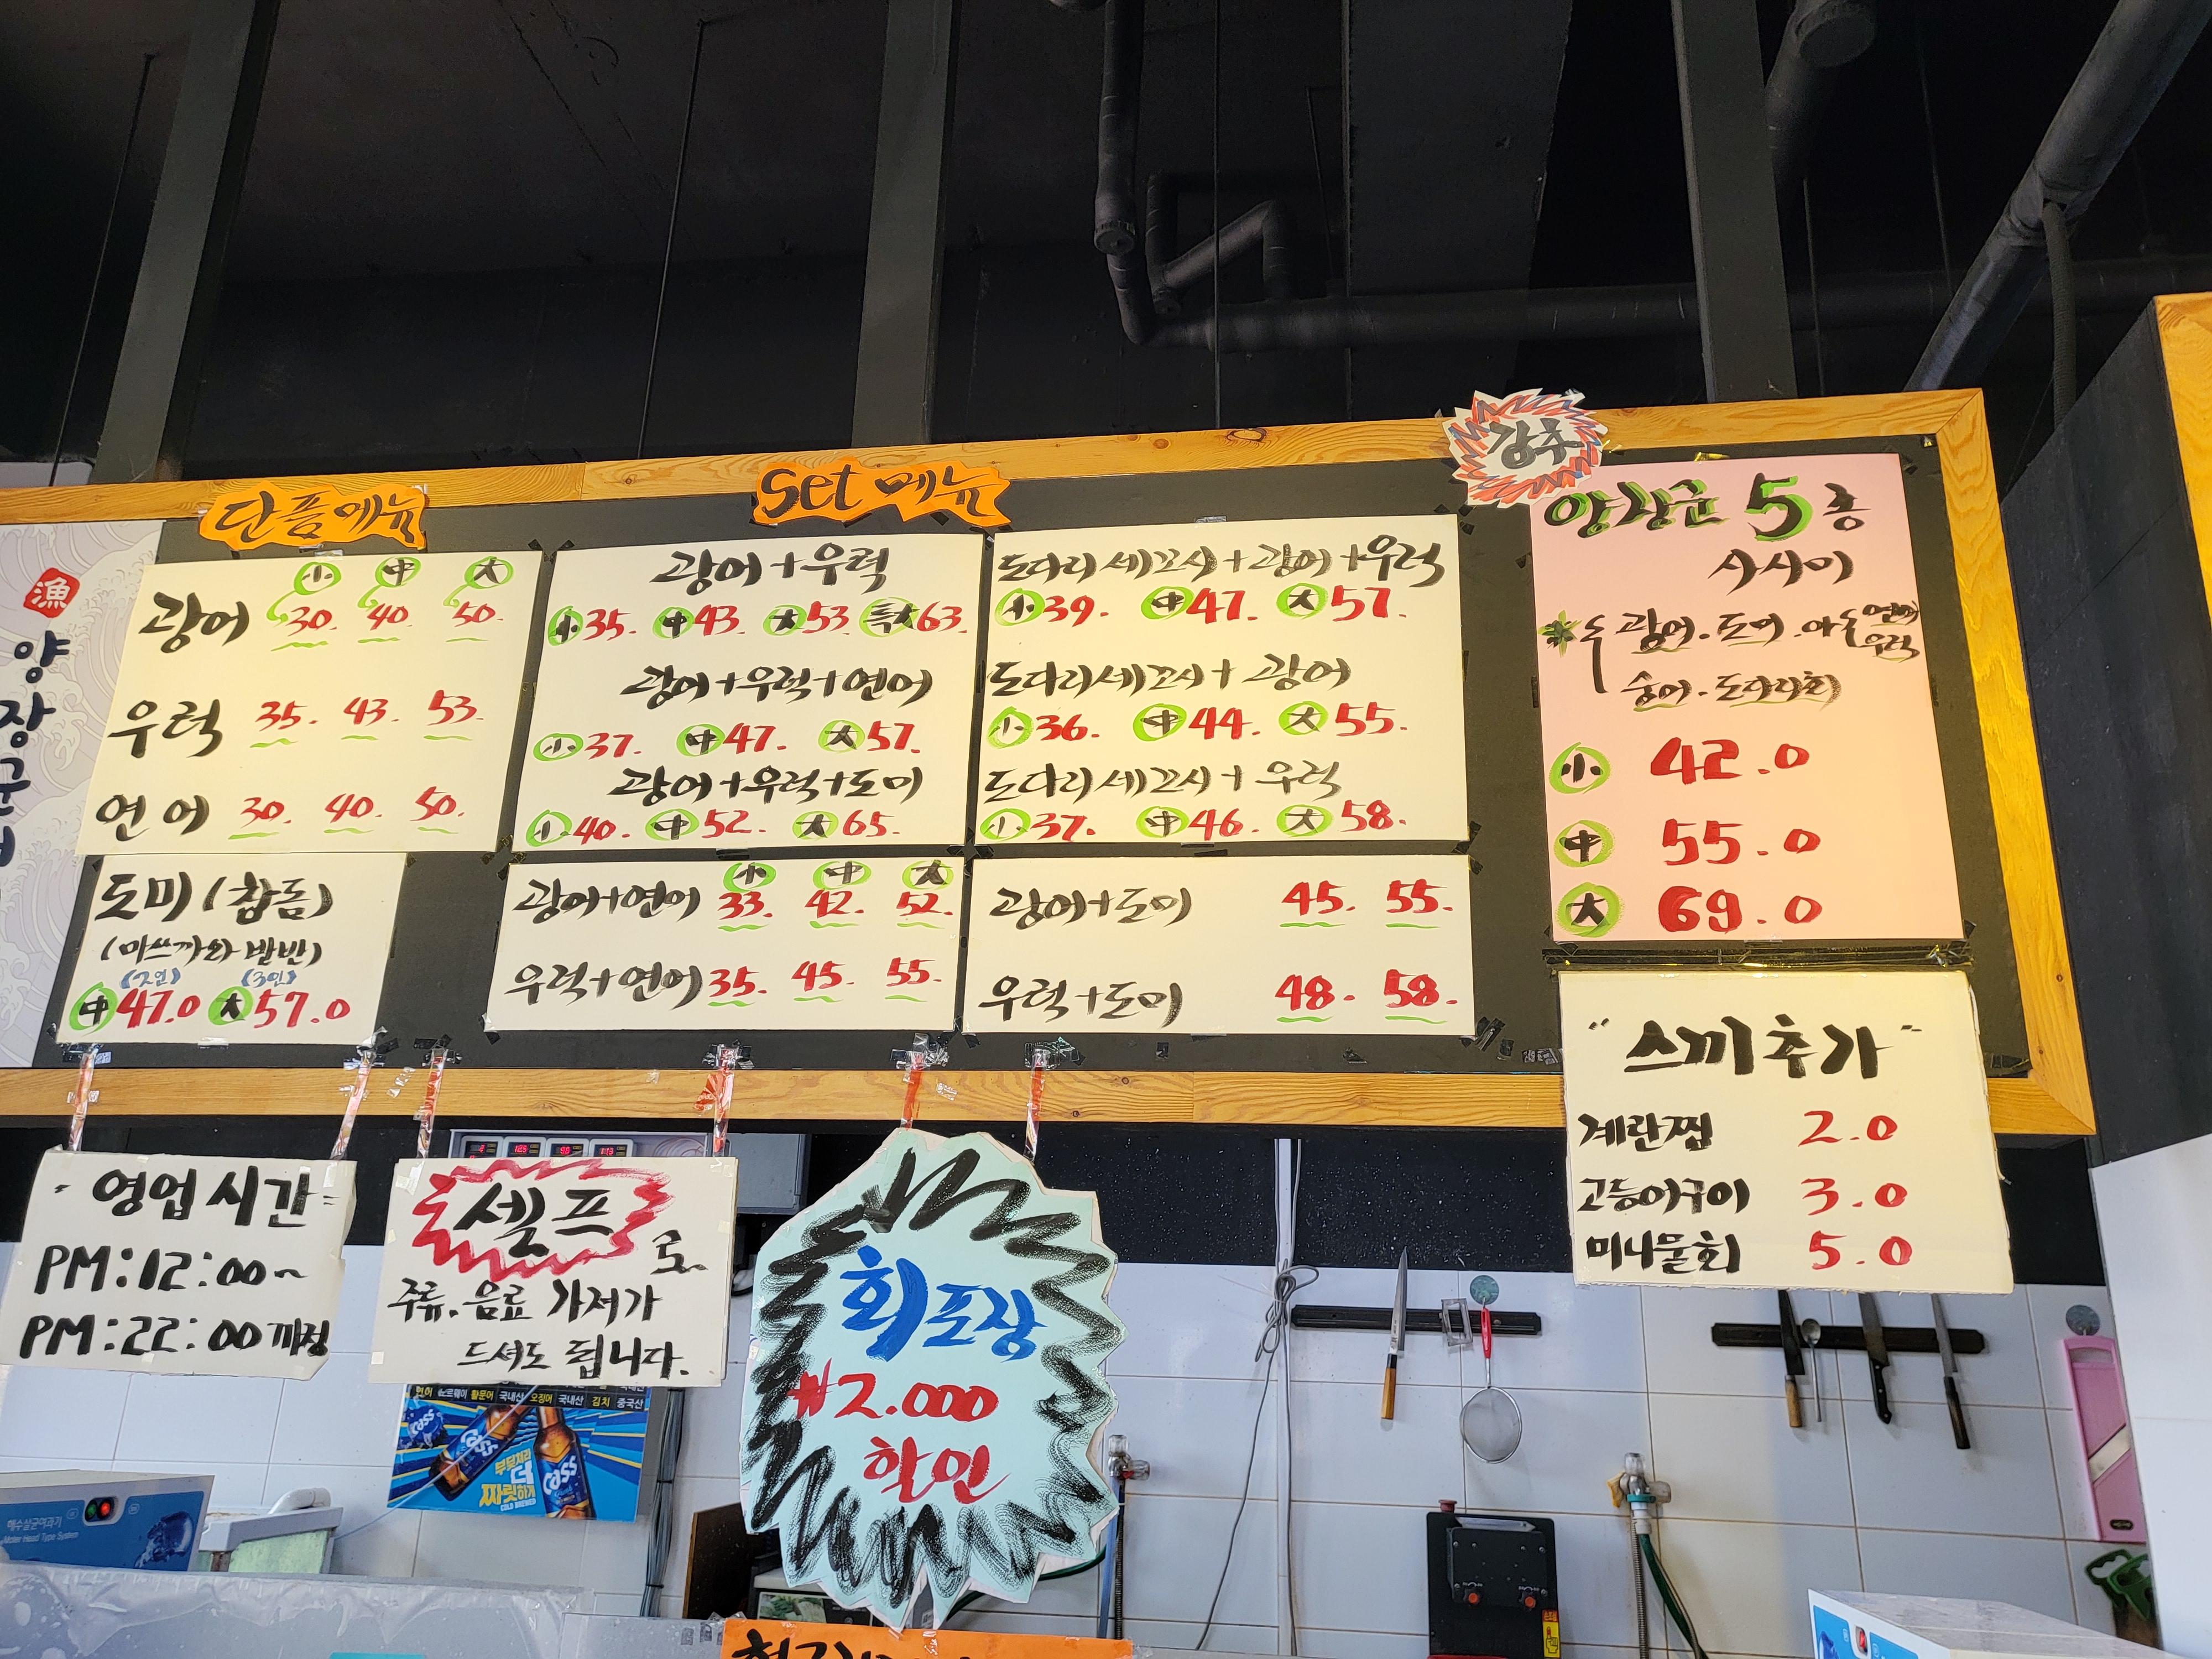 漁
양장군
단품메뉴
小 中 大
광어 30. 40. 50.
우럭 35. 43. 53.
연어 30. 40. 50.
도미(참돔)
(마쓰까와 반반)
(2인) (3인)
中 47.0 大 57.0
set 메뉴
광어+우럭
小 35. 中 43. 大 53 특大 63.
광어+우럭+연어
小 37. 中 47. 大 57.
광어+우럭+도미
小 40. 中 52. 大 65.
小 中 大
광어+연어 33. 42. 52.
우럭+연어 35. 45. 55.
도다리세꼬시+광어+우럭
小 39. 中 47. 大 57.
도다리세꼬시+광어
小 36. 中 44. 大 55.
도다리세꼬시+우럭
小 37. 中 46. 大 58.
광어+도미 45. 55.
우럭+도미 48. 58.
강추
양장군 5종
사시미
광어.도미. 연어
우럭
숭어.도다리회
小 42.0
中 55.0
大 69.0
"스끼추가"
계란찜 2.0
고등어구이 3.0
미니물회 5.0
영업시간
PM:12:00~
PM:22:00까정
셀프로
주류.음료 가져가
드셔도 됩니다.
회포장
₩2.000
할인
연어 노르웨이 활문어 국내산 오징어 국내산 김치 중국산
Cass
Cass
Cass
부딪치라
더
짜릿하게
COLD BREWED
해수살균여과기
Water Head Type System